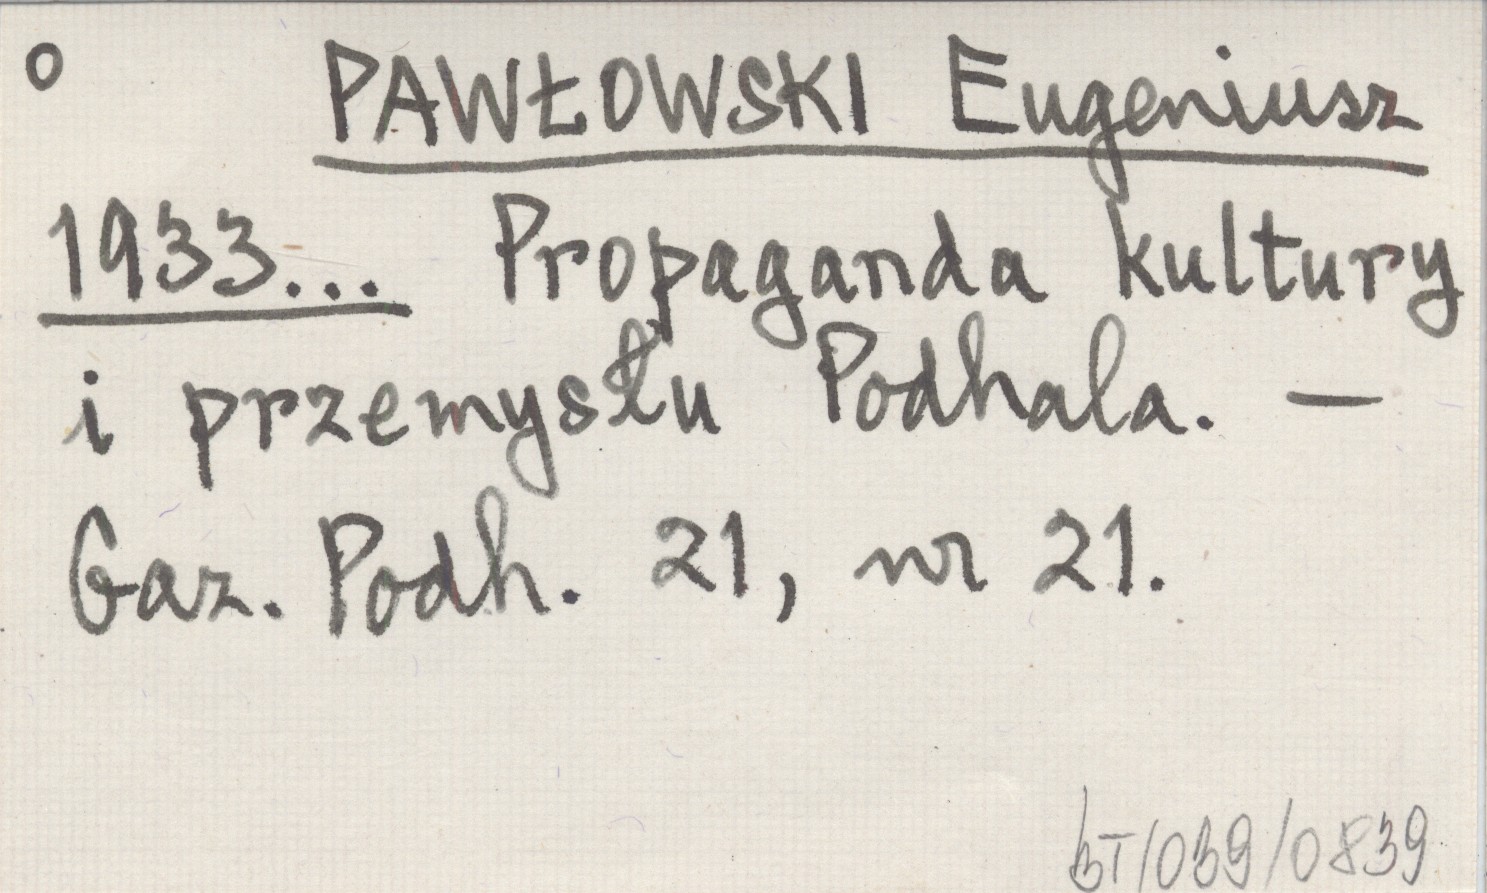 o PAWŁOWSKI Eugeniusz
1933... Propaganda kultury
i przemysłu Podhala. —
Gaz. Podh. 21, nr 21.
BT/039/0839